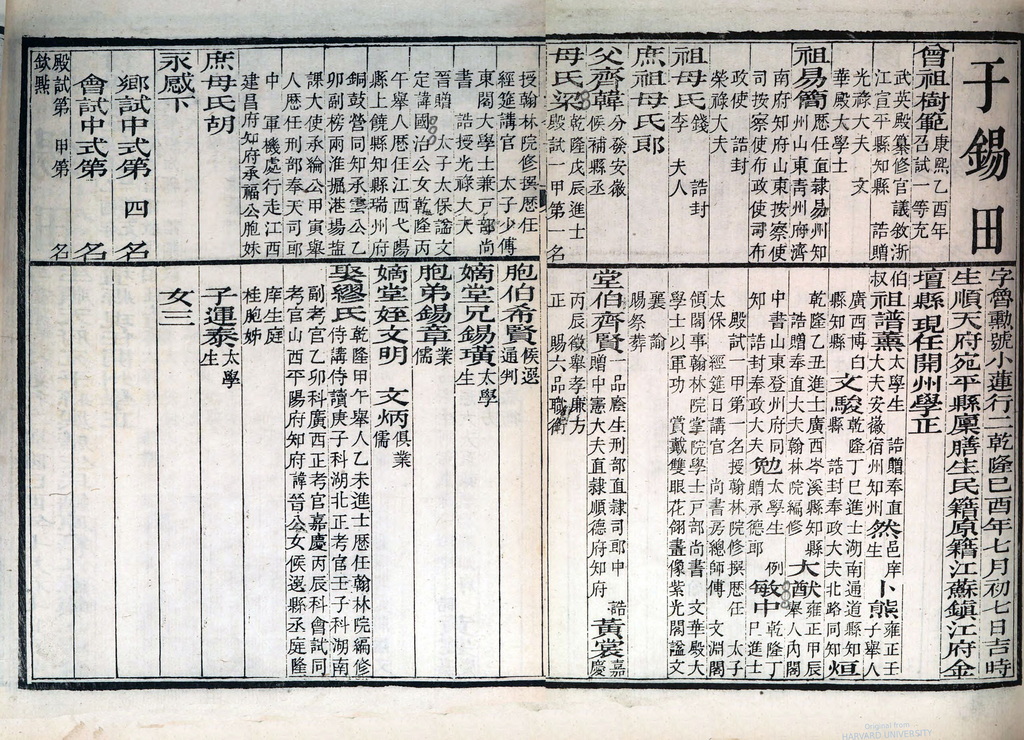 于錫田
字魯勳號小蓮行二乾隆己酉年七月初七日吉時
生順天府宛平縣廩膳生民籍原籍江蘇鎮江府金
壇縣現任開州學正
曾祖樹範康熙乙酉年
武英殿纂修官議敘浙
江宣平縣知縣 誥贈
光祿大夫 文
華殿大學士
祖易簡歷任直隸易州知
州山東青州府濟
南府知府山東按察使
司按察使布政使司布
政使 誥封
榮祿大夫
祖母氏錢 誥封
李 夫人
庶祖母氏郎
父齊韓分發安徽
候補縣丞
母氏梁乾隆戊辰進士
殿試一甲第一名
授翰林院修撰歷任
經筵講官 太子少傅
東閣大學士兼戶部尚
書 誥授光祿大夫
晉贈 太子太保諡文
定諱國治公女乾隆丙
午舉人歷任江西弋陽
縣上饒縣知縣瑞州府
銅鼓營同知承雲公乙
卯副榜兩淮掘港場鹽
課大使承綸公甲寅舉
人歷任刑部奉天司郎
中 軍機處行走江西
建昌府知府承福公胞妹
庶母氏胡
永感下
鄉試中式第 四 名
會試中式第 名
殿試第 甲第 名
欽點
伯叔祖譜熏太學生 誥贈奉直
大夫安徽宿州知州 然邑庠生 卜熊雍正壬子舉人
廣西博白縣知縣 文駿乾隆丁巳進士湖南通道縣知
縣 誥封奉政大夫北路同知 烜
乾隆乙丑進士廣西岑溪縣知縣
誥贈奉直大夫翰林院編修 大酋伏雍正甲辰舉人內閣
中書山東登州府同知
誥封奉政大夫 勉太學生 例贈承德郎 敏中乾隆丁巳進士
殿試一甲第一名授翰林院修撰歷任 太子
太保 經筵日講官 尚書房總師傅 文淵閣
領閣事翰林院掌院學士戶部尚書 文華殿大
學士以軍功 賞戴雙眼花翎畫像紫光閣諡文
襄 諭
賜祭葬
堂伯齊賢一品廕生刑部直隸司郎中 誥
贈中憲大夫直隸順德府知府 黃裳嘉慶
丙辰徵舉孝廉方
正 賜六品職銜
胞伯希賢候選
通判
嫡堂兄錫璜太學生
胞弟錫章業儒
嫡堂姪文明 文炳俱業儒
娶繆氏乾隆甲午舉人乙未進士歷任翰林院編修
侍講侍讀庚子科湖北正考官壬子科湖南
副考官乙卯科廣西正考官嘉慶丙辰科會試同
考官山西平陽府知府諱晉公女候選縣丞庭隆
庠生庭
桂胞姊
子運泰太學生
女三
Original from
HARVARD UNIVERSITY